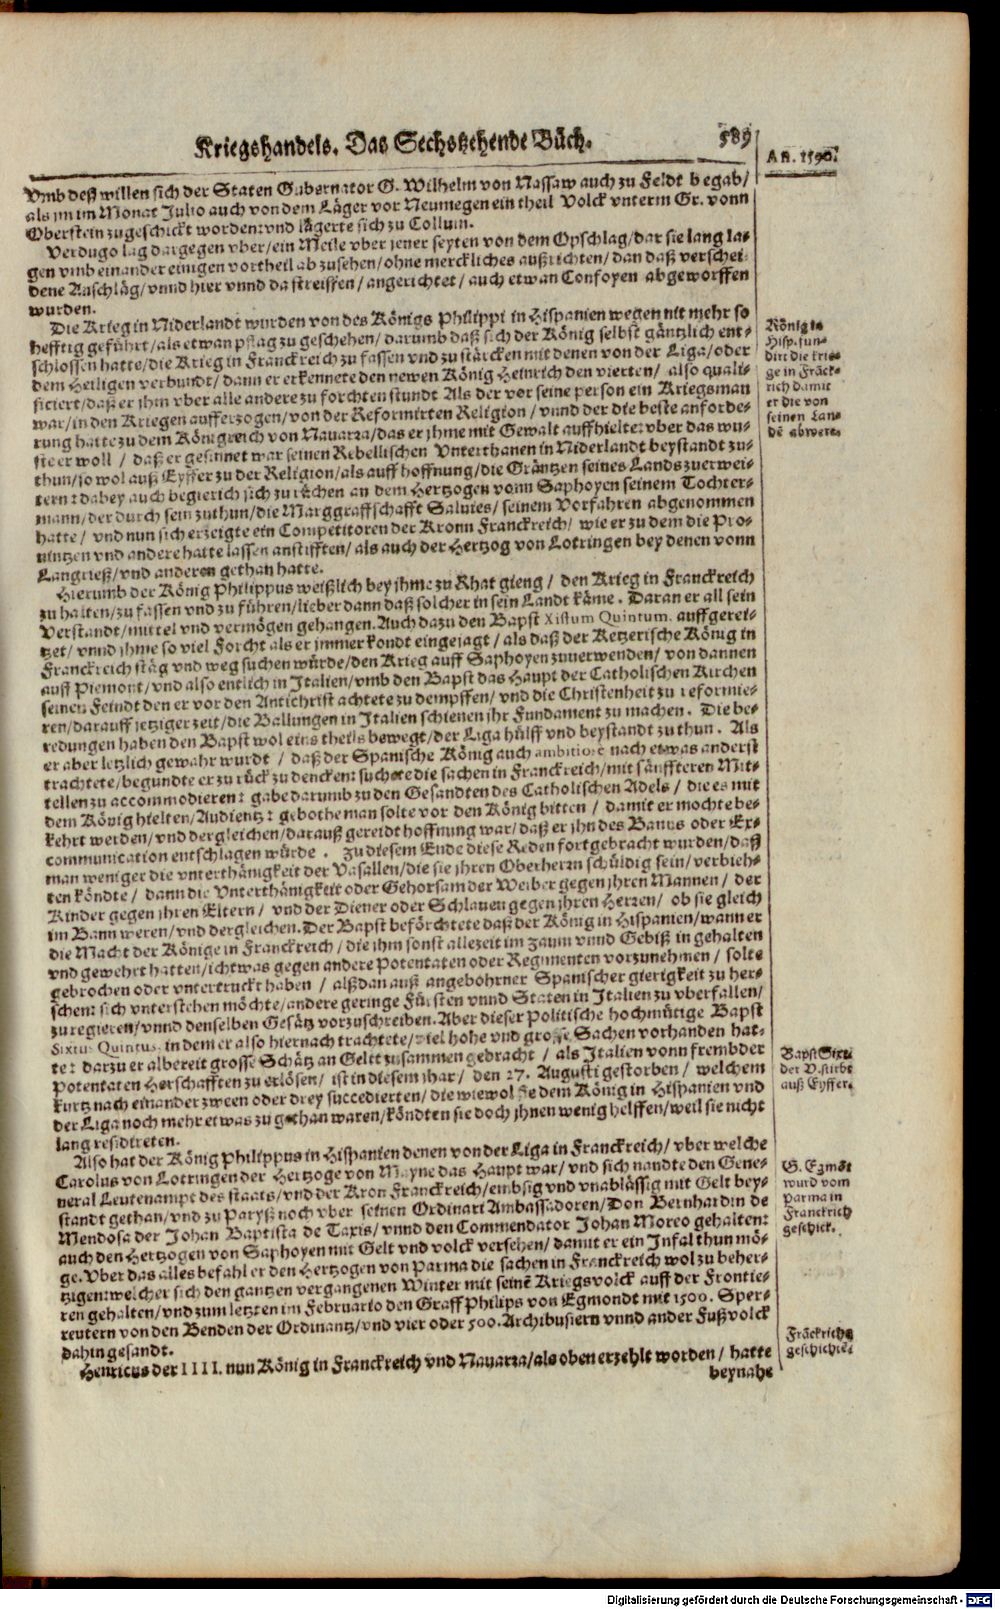 Kriegshandels. Das Sechszehende Büch. 589
An. 1590.
Vmb deß willen sich der Staten Gubernator G. Wilhelm von Nassaw auch zu Feldt begab/
als im im Monat Julio auch von dem Läger vor Neumegen ein theil Volck vnterm Gr. vonn
Oberstein zugeschickt worden: vnd lägerte sich zu Collum.
Verdugo lag dargegen vber/ ein Meile vber jener seyten von dem Opschlag/ dar sie lang la-
gen vmb einander einigen vortheil ab zusehen/ ohne merckliches außrichten/ dan daß verschei-
dene Anschläg/ vnnd hier vnnd da streiffen/ angerichtet/ auch etwan Confoyen abgeworffen
wurden.
Die Krieg in Niderlandt wurden von des Königs Philippi in Hispanien wegen nit mehr so
hefftig geführt/ als etwan pflag zu geschehen/ darumb daß sich der König selbst gäntzlich ent-
schlossen hatte/ die Krieg in Franckreich zu fassen vnd zu stärcken mit denen von der Liga/ oder
dem Heiligen verbundt/ dann er erkennete den newen König Heinrich den vierten/ also quali-
ficiert/ daß er jhn vber alle andere zu forchten stundt Als der vor seine person ein Kriegsman
war/ in den Kriegen aufferzogen/ von der Reformirten Religion/ vnnd der die beste anforde-
rung hatte zu dem Königreich von Nauarra/ das er jhme mit Gewalt auffhielte: vber das wu-
ste er woll/ daß er gesinnet war seinen Rebellischen Vnterthanen in Niderlandt beystandt zu-
thun/ so wol auß Eyffer zu der Religion/ als auff hoffnung/ die Gräntzen seines Lands zuerwei-
tern: dabey auch begierich sich zu rächen an dem Hertzogen vonn Saphoyen seinem Tochter-
mann/ der durch sein zuthun/ die Marggraffschafft Saluies/ seinem Vorfahren abgenommen
hatte/ vnd nun sich erzeigte ein Competitoren der Kronn Franckreich/ wie er zu dem die Pro-
uintzen vnd andere hatte lassen anstifften/ als auch der Hertzog von Lotringen bey denen vonn
Langrieß/ vnd anderen gethan hatte.
Hierumb der König Philippus weißlich bey jhme zu Rhat gieng/ den Krieg in Franckreich
zu halten/ zu fassen vnd zu führen/ lieber dann daß solcher in sein Landt käme. Daran er all sein
Verstandt/ mittel vnd vermögen gehangen. Auch dazu den Bapst Xistum Quintum auffgerei-
tzet/ vnnd jhme so viel Forcht als er jmmer kondt eingejagt/ als daß der Ketzerische König in
Franckreich stäg vnd weg suchen würde/ den Krieg auff Saphoyen zuuerwenden/ von dannen
auff Piemont/ vnd also entlich in Italien/ vmb den Bapst das Haupt der Catholischen Kirchen
seinen Feindt den er vor den Antichrist achtete zu dempffen/ vnd die Christenheit zu reformie-
ren/ darauff jetziger zeit/ die Ballungen in Italien schienen jhr Fundament zu machen. Die be-
redungen haben den Bapst wol eins theils bewegt/ der Liga hülff vnd beystandt zu thun. Als
er aber letzlich gewahr wurdt/ daß der Spanische König auch ambitiose nach etwas anderst
trachtete/ begundte er zu rück zu dencken: suchete die sachen in Franckreich/ mit sänffteren Mit-
tellen zu accommodieren: gabe darumb zu den Gesandten des Catholischen Adels/ die es mit
dem König hielten/ Audientz: gebothe man solte vor den König bitten/ damit er mochte be-
kehrt werden/ vnd dergleichen/ darauß gereidt hoffnung war/ daß er jhn des Banns oder Ex-
communication entschlagen würde. Zu diesem Ende diese Reden fort gebracht wurden/ daß
man weniger die vnterthänigkeit der Vasallen/ die sie jhren Oberherrn schüldig sein/ verbieh-
ten köndte/ dann die Vnterthänigkeit oder Gehorsam der Weiber gegen jhren Mannen/ der
Kinder gegen jhren Eltern/ vnd der Diener oder Schlauen gegen jhren Herren/ ob sie gleich
im Bann weren/ vnd dergleichen. Der Bapst beförchtete daß der König in Hispanien/ wann er
die Macht der Könige in Franckreich/ die jhm sonst allezeit im zaum vnnd Gebiß in gehalten
vnd gewehrt hatten/ ichtwas gegen andere Potentaten oder Regimenten vorzunehmen/ solte
gebrochen oder vntertruckt haben/ alßdan auß angebohrner Spanischer gierigkeit zu her-
schen: sich vnterstehen möchte/ andere geringe Fürsten vnnd Staten in Italien zu vberfallen/
zu regieren/ vnnd denselben Gesätz vorzuschreiben. Aber dieser Politische hochmütige Bapst
Sixtus Quintus, in dem er also hiernach trachtete/ viel hohe vnd grosse Sachen vorhanden hat-
te: darzu er albereit grosse Schätz an Geltt zusammen gebracht/ als Italien vonn frembder
Potentaten Herschafften zu erlösen/ ist in diesem jhar/ den 27. Augusti gestorben/ welchem
kurtz nach einander zween oder drey succedierten/ die wiewol sie dem König in Hispanien vnd
der Liga noch mehr etwas zu gethan waren/ köndten sie doch jhnen wenig helffen/ weil sie nicht
lang residireten.
Also hat der König Philippus in Hispanien denen von der Liga in Franckreich/ vber welche
Carolus von Lotringen der Hertzoge von Mayne das Haupt war/ vnd sich nandte den Gene-
neral Leutenampt des staats/ vnd der Kron Franckreich/ embsig vnd vnablässig mit Gelt bey-
standt gethan/ vnd zu Paryß noch vber seinen Ordinari Ambassadoren/ Don Bernhardin de
Mendosa der Johan Baptista de Taxis/ vnnd den Commendator Johan Moreo gehalten:
auch den Hertzogen von Saphoyen mit Gelt vnd volck versehen/ damit er ein Infal thun mö-
ge. Vber das alles befahl er den Hertzogen von Parma die sachen in Franckreich wol zu beher-
tzigen: welcher sich den gantzen vergangenen Winter mit seinē Kriegsvolck auff der Frontie-
ren gehalten/ vnd zum letzten im Februario den Graff Philips von Egmondt mit 1500. Sper-
reutern von den Benden der Ordinantz/ vnd vier oder 500. Archibusiern vnnd ander Fußvolck
dahin gesandt.
Henricus der IIII. nun König in Franckreich vnd Nauarra/ als oben erzehlt worden/ hatte
beynahe
König in
Hisp. fun-
dirt die krie-
ge in Fräck-
rich damit
er die von
seinen Lan-
dē abwere.
Bapst Sixtus
der V. stirbt
auß Eyffer.
G. Egmōt
wurd vom
Parma in
Franckrich
geschick.
Fräckrichs
geschichte.
Digitalisierung gefördert durch die Deutsche Forschungsgemeinschaft - DFG